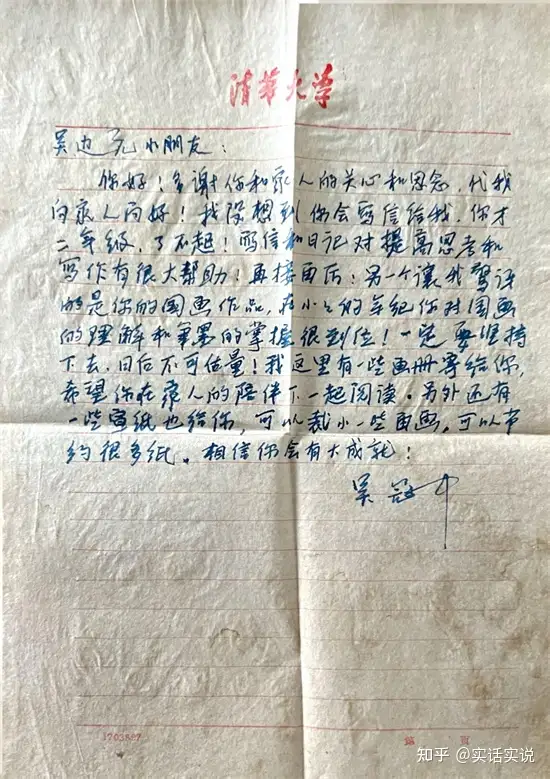 清华大学
吴边元小朋友：
你好！多谢你和家人的关心和思念，代我
向家人问好！我没想到你会写信给我，你才
二年级，了不起！写信和日记对提高思考和
写作有很大帮助！再接再厉！另一个让我惊讶
的是你的国画作品，在小小的年纪你对国画
的理解和笔墨的掌握很到位！一定要坚持
下去，日后不可估量！我这里有一些画册寄给你，
希望你在家人的陪伴下一起阅读。另外还有
一些宣纸也给你，可以裁小一些画画，可以节
约很多纸。相信你会有大成就！
吴冠中
1703887
第 页
知乎 @实话实说